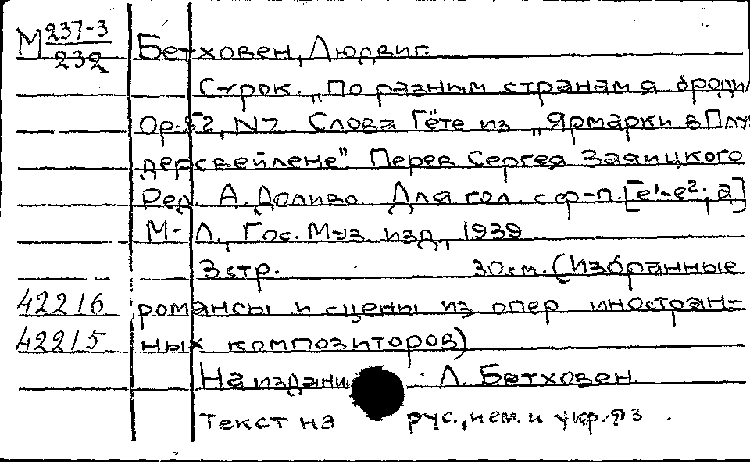 М 237-3/232 Бетховен, Людвиг.
Строк. „По разным странам я броди
Op. 52, N7. Слова Гёте из „Ярмарки в Плун
дерсвейлене". Перев. Сергея Заяицкого
Ред. А. Доливо Для гол. с ф-п. [e¹-e²; a]
М-Л., Гос. Муз. изд, 1939
3 стр. 30 см. (Избранные
42216 романсы и сцены из опер иностран-
42215 ных композиторов)
На издани : Л. Бетховен.
Текст на рус., нем. и укр. яз.